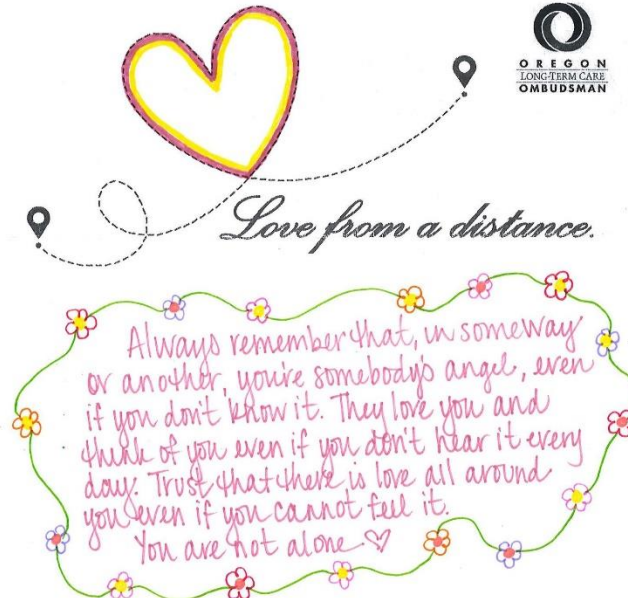 OREGON
LONG-TERM CARE
OMBUDSMAN
Love from a distance.
Always remember that, in someway
or another, you're somebody's angel, even
if you don't know it. They love you and
think of you even if you don't hear it every
day. Trust that there is love all around
you even if you cannot feel it.
You are not alone ♡